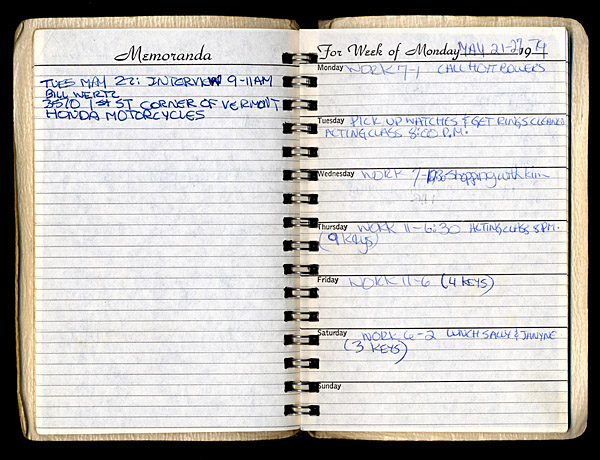 Memoranda
TUES MAY 22: INTERVIEW 9-11AM
BILL WERTZ
3570 1st ST CORNER OF VERMONT
HONDA MOTORCYCLES
For Week of Monday MAY 21-27 1974
Monday WORK 7-1 CALL HOYT BOWERS
Tuesday PICK UP WATCHES & GET RINGS CLEANED
ACTING CLASS 8:00 P.M.
Wednesday WORK shopping with kim
Thursday WORK 11-6:30 ACTING CLASS 8 P.M.
(9 KEYS)
Friday WORK 11-6 (4 KEYS)
Saturday WORK 6-2 LUNCH SALLY & JANYNE
(3 KEYS)
Sunday